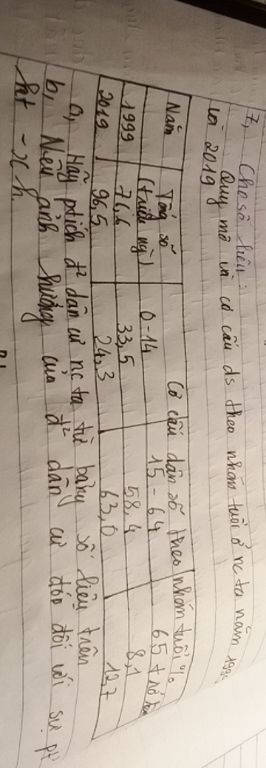 7, Cho số liệu:
Quy mô và cơ cấu ds theo nhóm tuổi ở nc ta năm 1999
và 2019
Năm Tổng số (triệu ng) Cơ cấu dân số theo nhóm tuổi %
0-14 15-64 65 trở
1999 76,6 33,5 58,4 8,1
2019 96,5 24,3 63,0 12,7
a, Hãy ptích đ² dân cư nc ta từ bảng số liệu trên
b, Nêu ảnh hưởng của đ² dân cư đó đối với sự pt
kt - xh